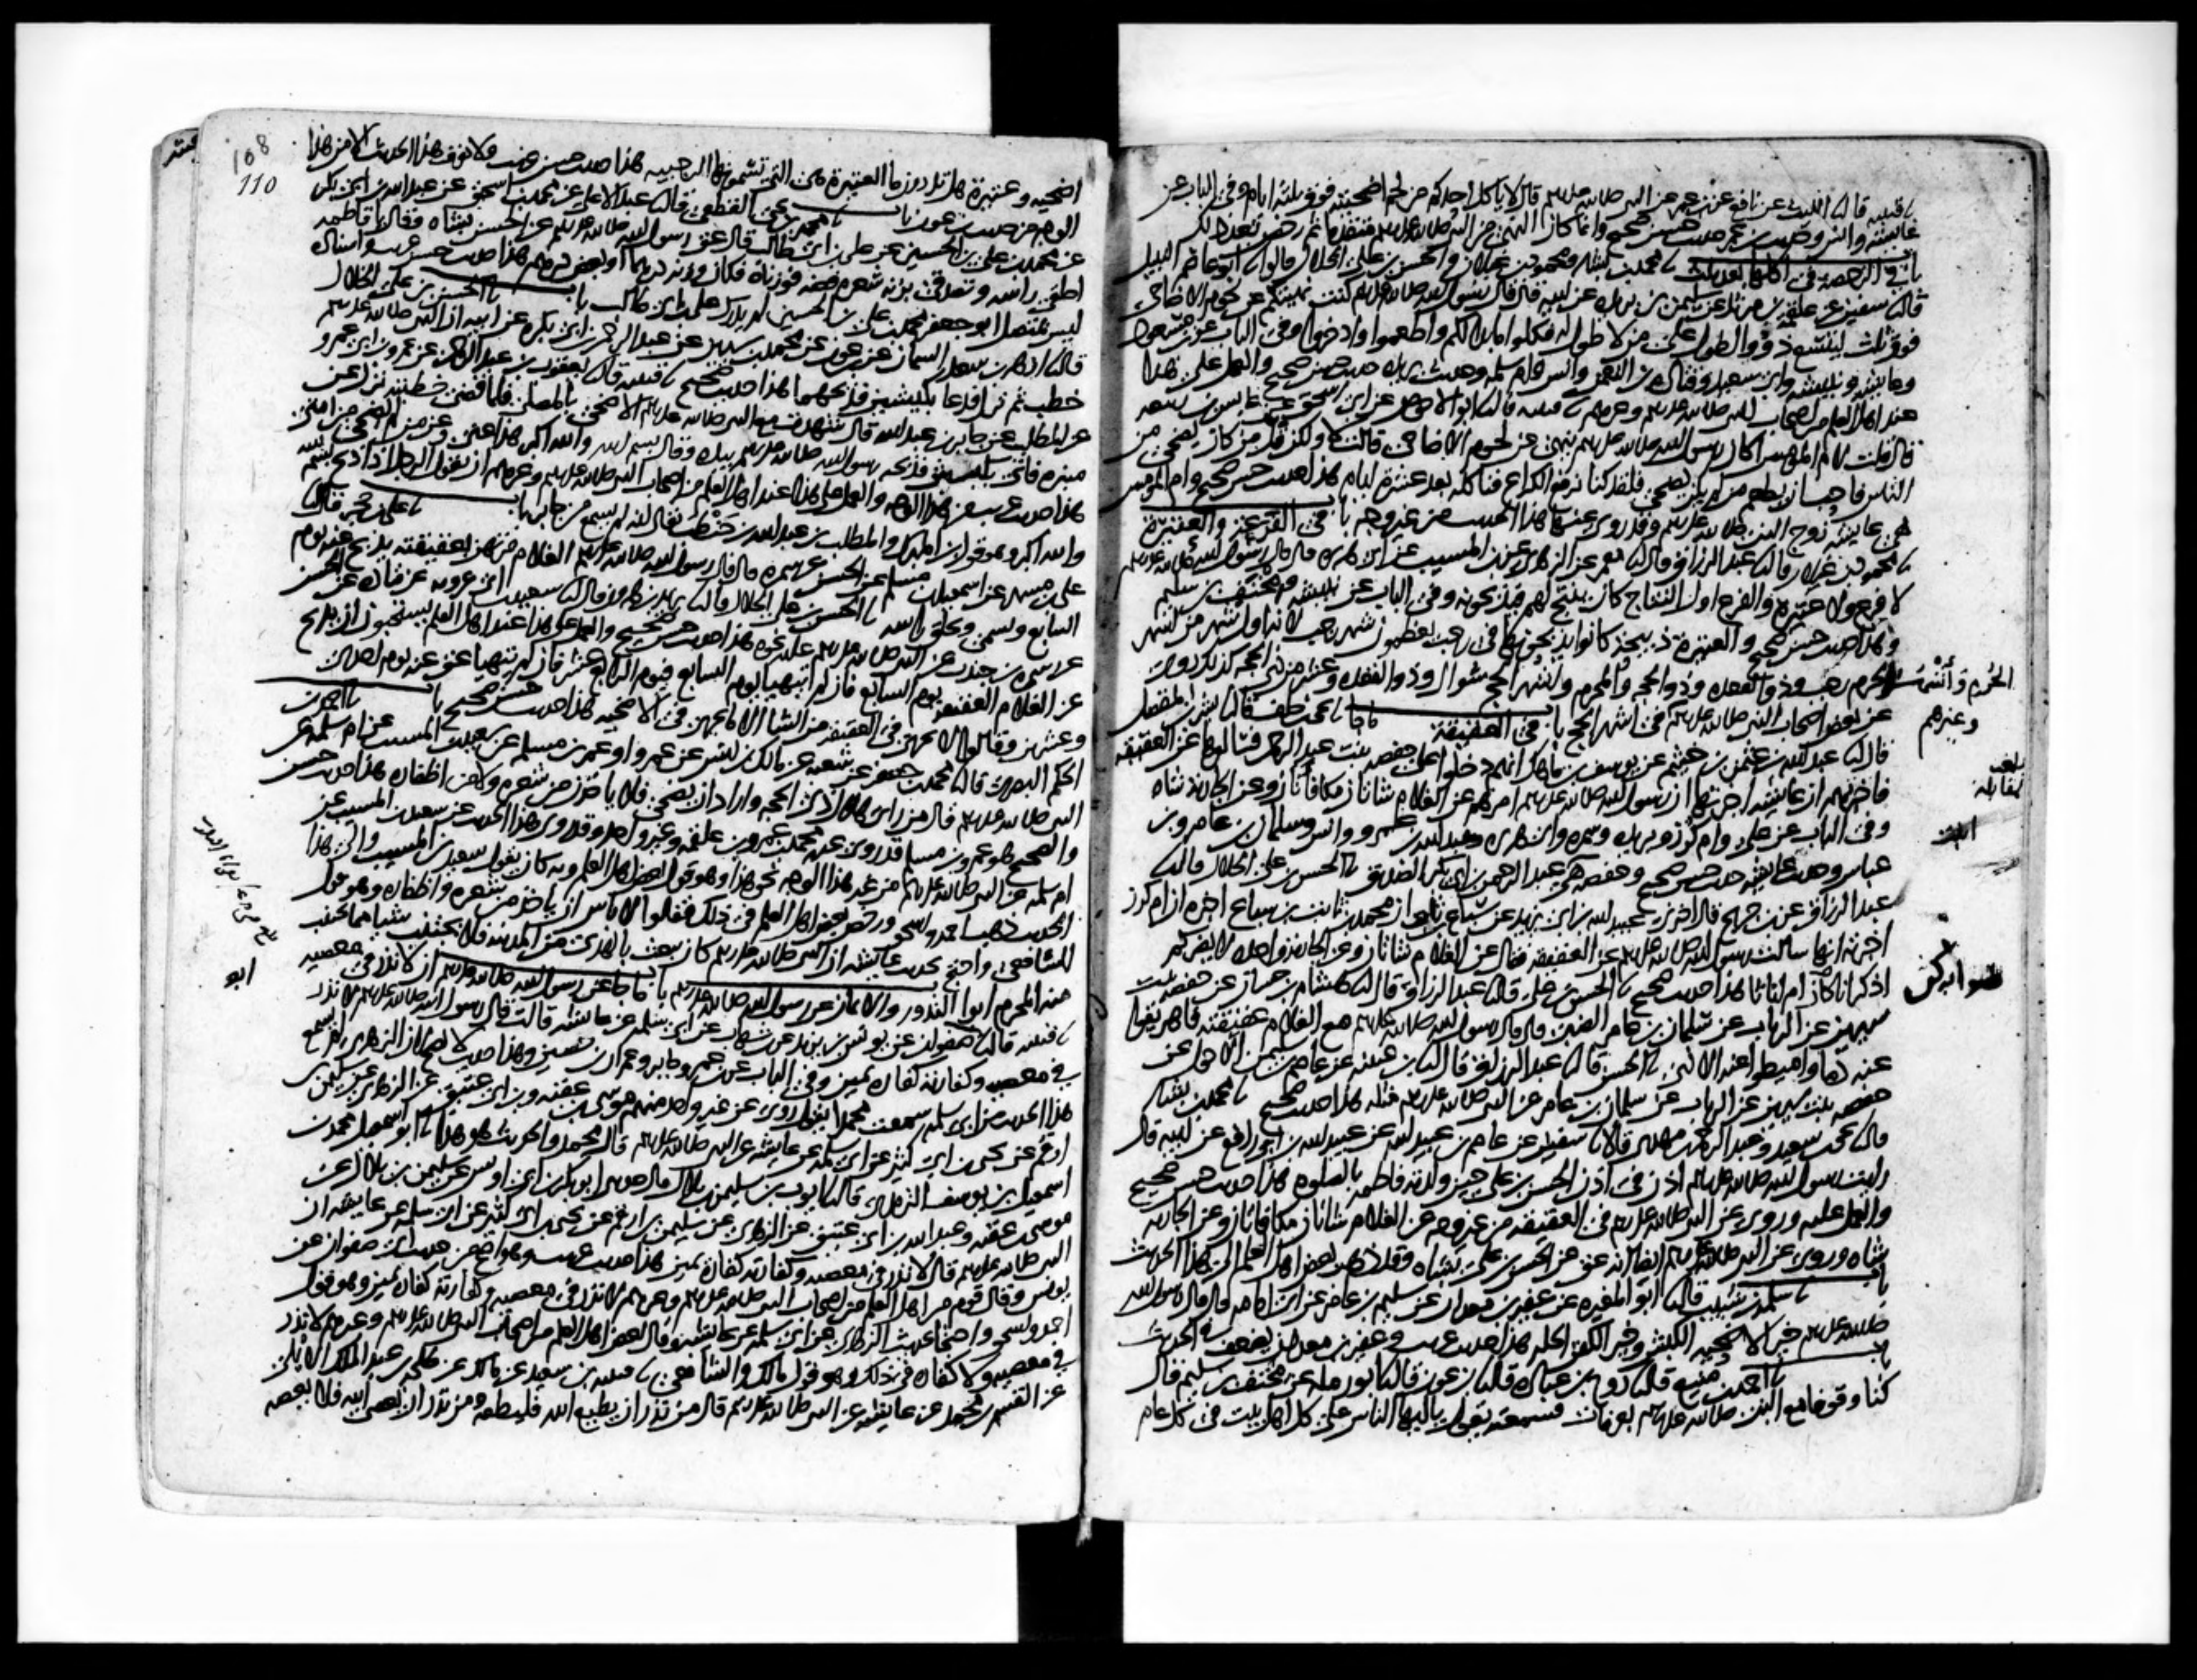 نا قتيبه قال نا الليث عن نافع عن ابن عمر عن النبي صلى الله عليه وسلم قال لا ياكل احدكم من لحم اضحيته فوق ثلثة ايام وفي الباب عن
عايشة وانس وحديث ابن عمر حديث حسن صحيح وانما كان النهي من النبي صلى الله عليه وسلم متقدما ثم رخص بعد ذلك
باب في الرخصة في اكلها بعد ثلث نا محمد بن بشار ومحمود بن غيلان والحسن بن علي الخلال قالوا نا ابو عاصم النبيل
قال نا سفين عن علقمة بن مرثد عن سليمن بن بريدة عن ابيه قال قال رسول الله صلى الله عليه وسلم كنت نهيتكم عن لحوم الاضاحي
فوق ثلث ليتسع ذوو الطول على من لا طول له فكلوا ما بدا لكم واطعموا وادخروا وفي الباب عن ابن مسعود
وعايشة ونبيشة وابي سعيد وقتادة بن النعمن وانس وام سلمة وحديث بريدة حديث حسن صحيح والعمل على هذا
عند اهل العلم من اصحاب النبي صلى الله عليه وسلم وغيرهم نا قتيبه قال نا ابو الاحوص عن ابي اسحق عن عابس بن ربيعه
قال قلت لام المومنين اكان رسول الله صلى الله عليه وسلم ينهى عن لحوم الاضاحي قالت لا ولكن قل من كان يضحي من
الناس فاحب ان يطعم من لم يكن يضحي فلقد كنا نرفع الكراع فناكله بعد عشرة ايام هذا حديث حسن صحيح وام المومنين
هي عايشة زوج النبي صلى الله عليه وسلم وقد روي عنها هذا الحديث من غير وجه باب في الفرع والعتيرة
نا محمود بن غيلان قال نا عبد الرزاق قال نا معمر عن الزهري عن ابن المسيب عن ابي هريرة قال قال رسول الله صلى الله عليه وسلم
لا فرع ولا عتيرة والفرع اول النتاج كان ينتج لهم فيذبحونه وفي الباب عن نبيشة ومخنف بن سليم
وهذا حديث حسن صحيح والعتيرة ذبيحة كانوا يذبحونها في رجب يعظمون شهر رجب لانه اول شهر من اشهر
الحرم رجب وذو القعدة وذو الحجة والمحرم واشهر الحج شوال وذو القعدة وعشر من ذي الحجة كذلك روي
عن بعض اصحاب النبي صلى الله عليه وسلم في اشهر الحج باب في العقيقة نا يحيى بن خلف قال نا بشر بن المفضل
قال نا عبد الله بن عثمن بن خثيم عن يوسف بن ماهك انهم دخلوا على حفصة بنت عبد الرحمن فسالوها عن العقيقة
فاخبرتهم ان عايشة اخبرتها ان رسول الله صلى الله عليه وسلم امرهم عن الغلام شاتان مكافاتان وعن الجارية شاة
وفي الباب عن علي وام كرز وبريدة وسمرة وابي هريرة وعبد الله بن عمرو وانس وسلمان بن عامر وابن
عباس وحديث عايشة حديث حسن صحيح وحفصة هي ابنة عبد الرحمن بن ابي بكر الصديق نا الحسن بن علي الخلال قال نا
عبد الرزاق عن ابن جريج قال اخبرني عبيد الله بن ابي يزيد عن سباع بن ثابت ان محمد بن ثابت بن سباع اخبره ان ام كرز
اخبرته انها سالت رسول الله صلى الله عليه وسلم عن العقيقة فقال عن الغلام شاتان وعن الجارية واحدة لا يضركم
اذكرانا كن ام اناثا هذا حديث صحيح نا الحسن بن علي قال نا عبد الرزاق قال نا هشام بن حسان عن حفصة بنت
سيرين عن الرباب عن سلمان بن عامر الضبي قال قال رسول الله صلى الله عليه وسلم مع الغلام عقيقته فاهريقوا
عنه دما واميطوا عنه الاذى نا الحسن قال نا عبد الرزاق قال نا ابن عيينة عن عاصم بن سليمن الاحول عن
حفصة بنت سيرين عن الرباب عن سلمان بن عامر عن النبي صلى الله عليه وسلم مثله هذا حديث صحيح نا محمد بن بشار
قال نا يحيى بن سعيد وعبد الرحمن بن مهدي قالا نا سفين عن عاصم بن عبيد الله عن عبيد الله بن ابي رافع عن ابيه قال
رايت رسول الله صلى الله عليه وسلم اذن في اذن الحسن بن علي حين ولدته فاطمة بالصلوة هذا حديث حسن صحيح
والعمل عليه وروي عن النبي صلى الله عليه وسلم في العقيقة من غير وجه عن الغلام شاتان مكافاتان وعن الجارية
شاة وروي عن النبي صلى الله عليه وسلم ايضا انه عق عن الحسن بن علي بشاة وقد ذهب بعض اهل العلم الى هذا الحديث
باب نا سلمة بن شبيب قال نا ابو المغيرة عن عفير بن معدان عن سليم بن عامر عن ابي امامة قال قال رسول الله
صلى الله عليه وسلم خير الاضحية الكبش وخير الكفن الحلة هذا حديث غريب وعفير بن معدان يضعف في الحديث
باب نا احمد بن منيع قال نا روح بن عبادة قال نا ابن عون قال نا ابو رملة عن مخنف بن سليم قال
كنا وقوفا مع النبي صلى الله عليه وسلم بعرفات فسمعته يقول يا ايها الناس على كل اهل بيت في كل عام
الحرم واشهر
وغيرهم
بلغت
مقابلة
ابنت
108
110
اضحية وعتيرة هل تدرون ما العتيرة هي التي تسمونها الرجبية هذا حديث حسن غريب ولا نعرف هذا الحديث الا من هذا
الوجه من حديث ابن عون باب نا محمد بن يحيى القطعي قال نا عبد الاعلى عن محمد بن اسحق عن عبد الله بن ابي بكر
عن محمد بن علي بن الحسين عن علي بن ابي طالب قال عق رسول الله صلى الله عليه وسلم عن الحسن بشاة وقال يا فاطمة
احلقي راسه وتصدقي بزنة شعره فضة فوزناه فكان وزنه درهما او بعض درهم هذا حديث حسن غريب واسناده
ليس بمتصل ابو جعفر محمد بن علي بن الحسين لم يدرك علي بن ابي طالب باب نا الحسن بن علي الخلال
قال نا ازهر بن سعد السمان عن ابن عون عن محمد بن سيرين عن عبد الرحمن بن ابي بكرة عن ابيه ان النبي صلى الله عليه وسلم
خطب ثم نزل فدعا بكبشين فذبحهما هذا حديث صحيح نا قتيبة قال نا يعقوب بن عبد الرحمن عن عمرو بن ابي عمرو
عن المطلب عن جابر بن عبد الله قال شهدت مع النبي صلى الله عليه وسلم الاضحى بالمصلى فلما قضى خطبته نزل عن
منبره فاتي بكبش فذبحه رسول الله صلى الله عليه وسلم بيده وقال بسم الله والله اكبر هذا عني وعن من لم يضح من امتي
هذا حديث غريب من هذا الوجه والعمل على هذا عند اهل العلم من اصحاب النبي صلى الله عليه وسلم وغيرهم ان يقول الرجل اذا ذبح بسم الله
والله اكبر وهو قول ابن المبارك والمطلب بن عبد الله بن حنطب يقال انه لم يسمع من جابر باب نا علي بن حجر قال نا
علي بن مسهر عن اسمعيل بن مسلم عن الحسن عن سمرة قال قال رسول الله صلى الله عليه وسلم الغلام مرتهن بعقيقته يذبح عنه يوم
السابع ويسمى ويحلق راسه نا الحسن بن علي الخلال قال نا يزيد بن هارون قال نا سعيد بن ابي عروبة عن قتادة عن الحسن
عن سمرة بن جندب عن النبي صلى الله عليه وسلم نحوه هذا حديث حسن صحيح والعمل على هذا عند اهل العلم يستحبون ان يذبح
عن الغلام العقيقة يوم السابع فان لم يتهيا يوم السابع فيوم الرابع عشر فان لم يتهيا عق عنه يوم احدى
وعشرين وقالوا لا يجزئ في العقيقة من الشاء الا ما يجزئ في الاضحية هذا حديث حسن صحيح باب نا احمد بن
الحكم البصري قال نا محمد بن جعفر عن شعبة عن مالك بن انس عن عمرو او عمر بن مسلم عن سعيد بن المسيب عن ام سلمة عن
النبي صلى الله عليه وسلم قال من راى هلال ذي الحجة واراد ان يضحي فلا ياخذن من شعره ولا من اظفاره هذا حديث حسن
والصحيح هو عمرو بن مسلم قد روى عنه محمد بن عمرو بن علقمة وغير واحد وقد روي هذا الحديث عن سعيد بن المسيب عن
ام سلمة عن النبي صلى الله عليه وسلم من غير هذا الوجه نحو هذا وهو قول بعض اهل العلم وبه كان يقول سعيد بن المسيب والى هذا
الحديث ذهب احمد واسحق ورخص بعض اهل العلم في ذلك فقالوا لا باس ان ياخذ من شعره واظفاره وهو قول
الشافعي واحتج بحديث عايشة ان النبي صلى الله عليه وسلم كان يبعث بالهدي من المدينة فلا يجتنب شيا مما يجتنب
منه المحرم ابواب النذور والايمان عن رسول الله صلى الله عليه وسلم باب ما جا عن رسول الله صلى الله عليه وسلم ان لا نذر في معصية
نا قتيبة قال نا ابو صفوان عن يونس بن يزيد عن ابن شهاب عن ابي سلمة عن عايشة قالت قال رسول الله صلى الله عليه وسلم لا نذر
في معصية وكفارته كفارة يمين وفي الباب عن ابن عمر وجابر وعمران بن حصين وهذا حديث لا يصح لان الزهري لم يسمع
هذا الحديث من ابي سلمة سمعت محمدا يقول روي عن غير واحد منهم موسى بن عقبة وابن ابي عتيق عن الزهري عن سليمن بن
ارقم عن يحيى بن ابي كثير عن ابي سلمة عن عايشة عن النبي صلى الله عليه وسلم قال محمد والحديث هو هذا نا ابو اسمعيل محمد بن
اسمعيل بن يوسف الترمذي قال نا ايوب بن سليمن بن بلال قال حدثني ابو بكر بن ابي اويس عن سليمن بن بلال عن
موسى بن عقبة وعبد الله بن ابي عتيق عن الزهري عن سليمن بن ارقم عن يحيى بن ابي كثير عن ابي سلمة عن عايشة ان
النبي صلى الله عليه وسلم قال لا نذر في معصية وكفارته كفارة يمين هذا حديث غريب وهو اصح من حديث ابي صفوان عن
يونس وقال قوم من اهل العلم من اصحاب النبي صلى الله عليه وسلم وغيرهم لا نذر في معصية وكفارته كفارة يمين وهو قول
احمد واسحق واحتجا بحديث الزهري عن ابي سلمة عن عايشة وقال بعض اهل العلم من اصحاب النبي صلى الله عليه وسلم وغيرهم لا نذر
في معصية ولا كفارة في ذلك وهو قول مالك والشافعي نا قتيبة بن سعيد عن مالك عن طلحة بن عبد الملك الايلي
عن القسم بن محمد عن عايشة عن النبي صلى الله عليه وسلم قال من نذر ان يطيع الله فليطعه ومن نذر ان يعصي الله فلا يعصه